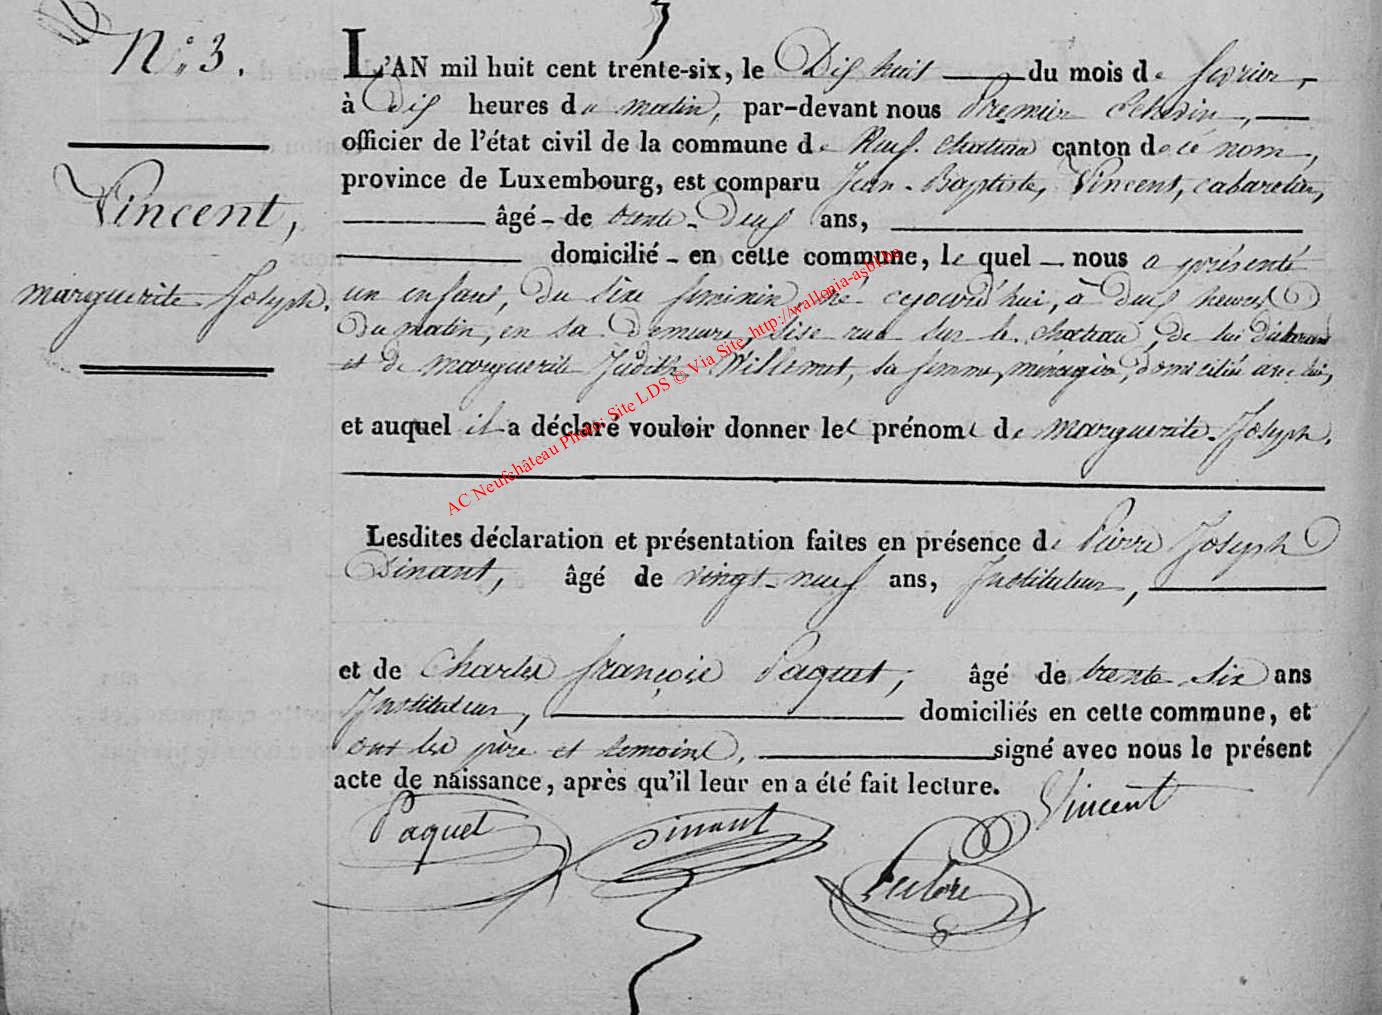 N.° 3.
Vincent,
marguerite Joseph.
L'AN mil huit cent trente-six, le Dix huit du mois de fevrier,
à Dix heures du matin, par-devant nous Premier Echevin,
officier de l'état civil de la commune de Neuf-chateau canton de ce nom,
province de Luxembourg, est comparu Jean-Baptiste, Vincent, cabaretier,
âgé - de trente-Deux ans,
domicilié - en cette commune, le quel - nous a présenté
un enfant, du sexe feminin, né cejourd'hui, à Deux heures
Du matin, en sa Demeure, sise rue sur le chateau, de lui Déclarant
et de marguerite Judith Willemet, sa femme, ménagère, domiciliée avec lui,
et auquel il a déclaré vouloir donner les prénoms de marguerite-Joseph.
Lesdites déclaration et présentation faites en présence de Pierre Joseph
Dinant, âgé de vingt-neuf ans, Instituteur,
et de Charles françois Paquet, âgé de trente six ans
Instituteur, domiciliés en cette commune, et
ont les père et temoins, signé avec nous le présent
acte de naissance, après qu'il leur en a été fait lecture.
Vincent
Paquet
Dinant
AC Neufchâteau Photo: Site LDS © Via Site http://wallonia-asbl.be